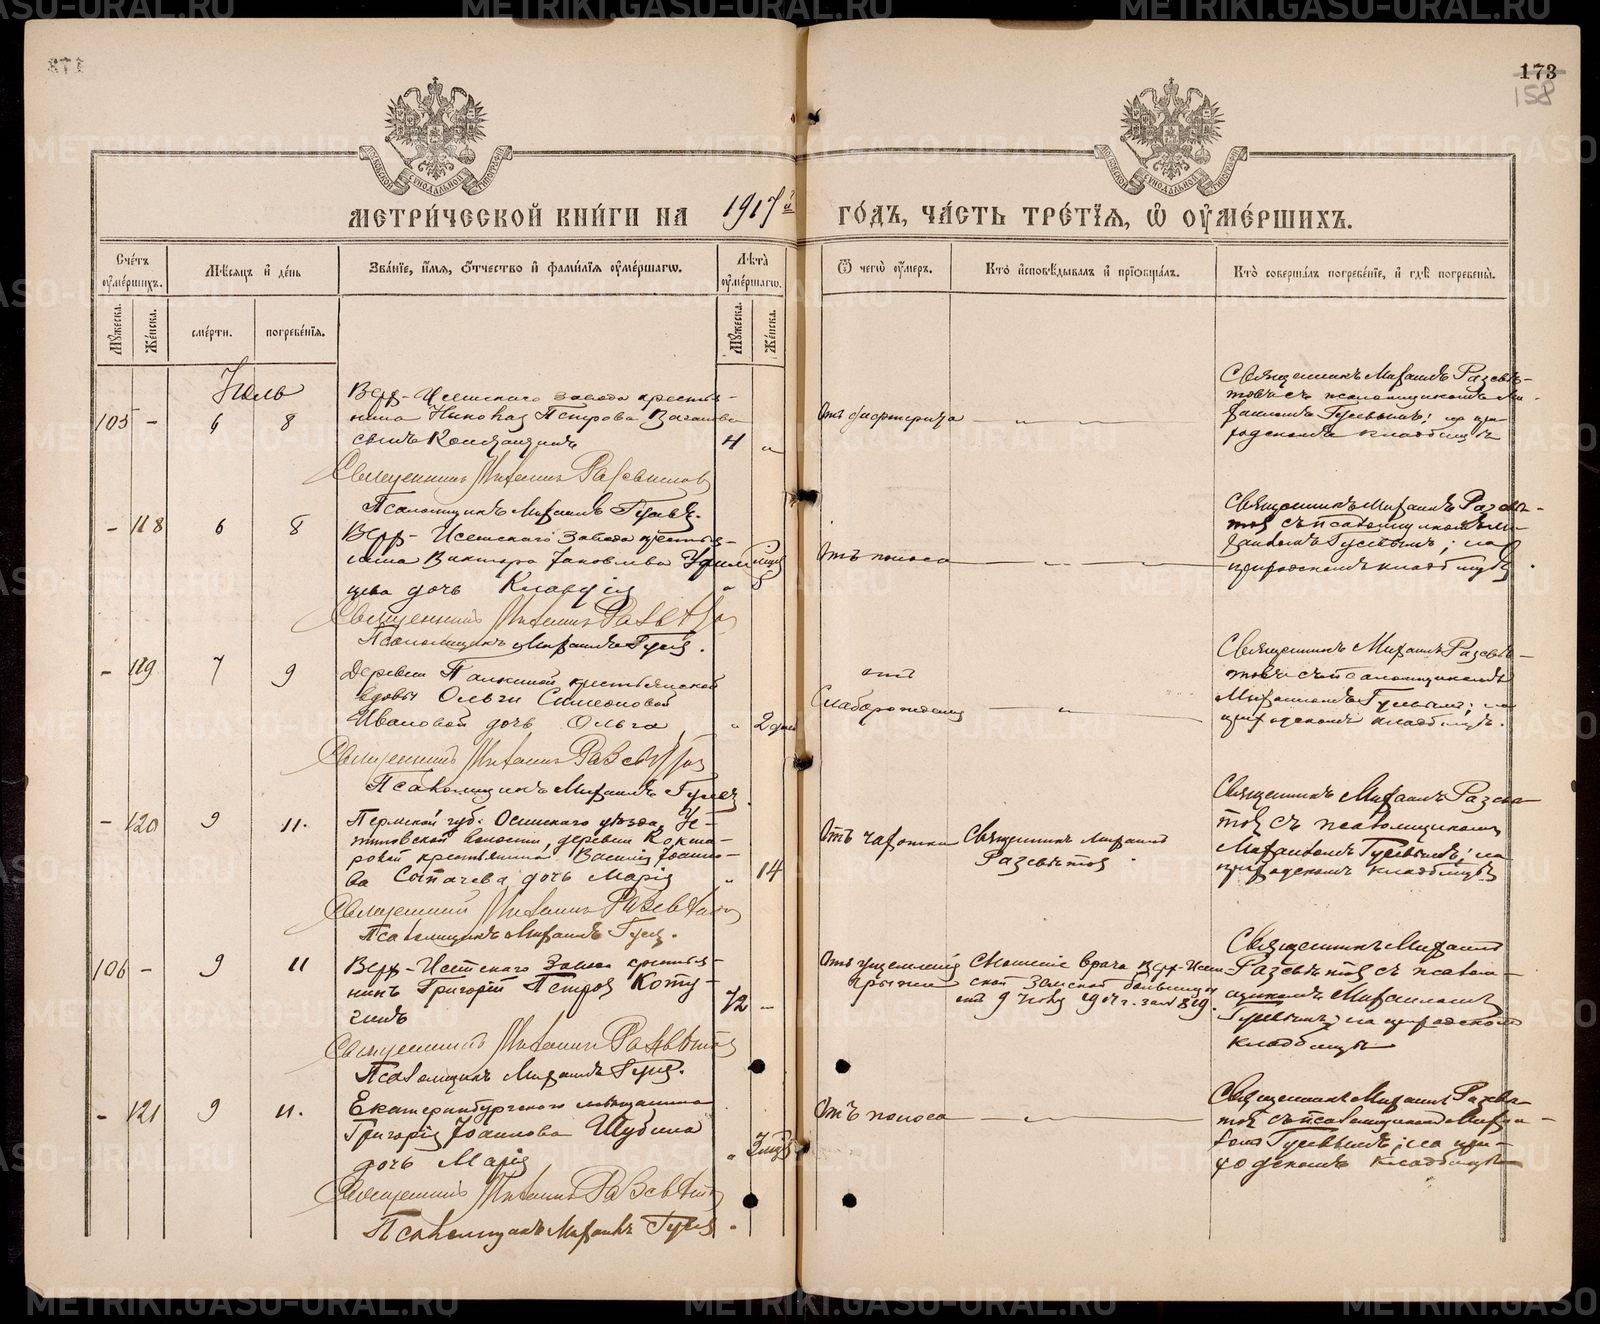 173
158
МЕТРИЧЕСКОЙ КНИГИ НА 1917й ГОДЪ, ЧАСТЬ ТРЕТІЯ, Ѽ ОУМЕРШИХЪ.
Счетъ оумершихъ.
Мѣсяцъ и день
Званіе, имя, отчество и фамилія оумершагѡ.
Лѣта оумершагѡ.
Ѿ чегѡ оумеръ.
Кто исповѣдывалъ и пріобщалъ.
Кто совершалъ погребеніе, и гдѣ погребены.
Мужеска.
Женска.
смерти.
погребенія.
Мужеска.
Женска.
Іюль
105 - 6 8
Верх-Исетскаго завода крестья-
нина Николая Петрова
сынъ Константинъ
4
Отъ дифтерита
Священникъ Михаилъ Разсвѣ-
товъ съ псаломщикомъ Ми-
хаиломъ Гусевымъ; на при-
ходскомъ кладбищѣ
Священникъ Михаилъ Разсвѣтовъ
Псаломщикъ Михаилъ Гусевъ.
- 118 6 8
Верх-Исетскаго завода крестья-
нина Виктора Яковлева
цева дочь Клавдія
Отъ поноса
Священникъ Михаилъ Разсвѣ-
товъ съ псаломщикомъ Ми-
хаиломъ Гусевымъ; на
приходскомъ кладбищѣ.
Священникъ Михаилъ Разсвѣтовъ
Псаломщикъ Михаилъ Гусевъ.
- 119 7 9
Деревни Палкиной крестьянской
вдовы Ольги Симеоновой
Ивановой дочь Ольга
2 дня
отъ
Слаборожденія
Священникъ Михаилъ Разсвѣ-
товъ съ псаломщикомъ
Михаиломъ Гусевымъ; на
приходскомъ кладбищѣ.
Священникъ Михаилъ Разсвѣтовъ
Псаломщикъ Михаилъ Гусевъ
- 120 9 11.
Пермской губ. Осинскаго уѣзда
волости деревни
крестьянина Василія Іоанно-
ва дочь Марія
14
Отъ чахотки
Священникъ Михаилъ
Разсвѣтовъ.
Священникъ Михаилъ Разсвѣ-
товъ съ псаломщикомъ
Михаиломъ Гусевымъ; на
приходскомъ кладбищѣ
Священникъ Михаилъ Разсвѣтовъ
Псаломщикъ Михаилъ Гусевъ.
106 - 9 11
Верх-Исетскаго завода крестья-
нинъ Григорій Петровъ Коту-
гинъ
72 -
Отъ ущемленія
грыжи
Сношеніе врача Верх-Исет-
ской Земской больницы
отъ 9 Іюля 1917 г. за № 819.
Священникъ Михаилъ
Разсвѣтовъ съ псалом-
щикомъ Михаиломъ
Гусевымъ; на приходскомъ
кладбищѣ
Священникъ Михаилъ Разсвѣтовъ
Псаломщикъ Михаилъ Гусевъ.
- 121 9 11.
Екатеринбургскаго мѣщанина
Григорія Іоаннова Шубина
дочь Марія
Отъ поноса
Священникъ Михаилъ Разсвѣ-
товъ съ псаломщикомъ Миха-
иломъ Гусевымъ; на при-
ходскомъ кладбищѣ
Священникъ Михаилъ Разсвѣтовъ
Псаломщикъ Михаилъ Гусевъ.
METRIKI.GASO-URAL.RU